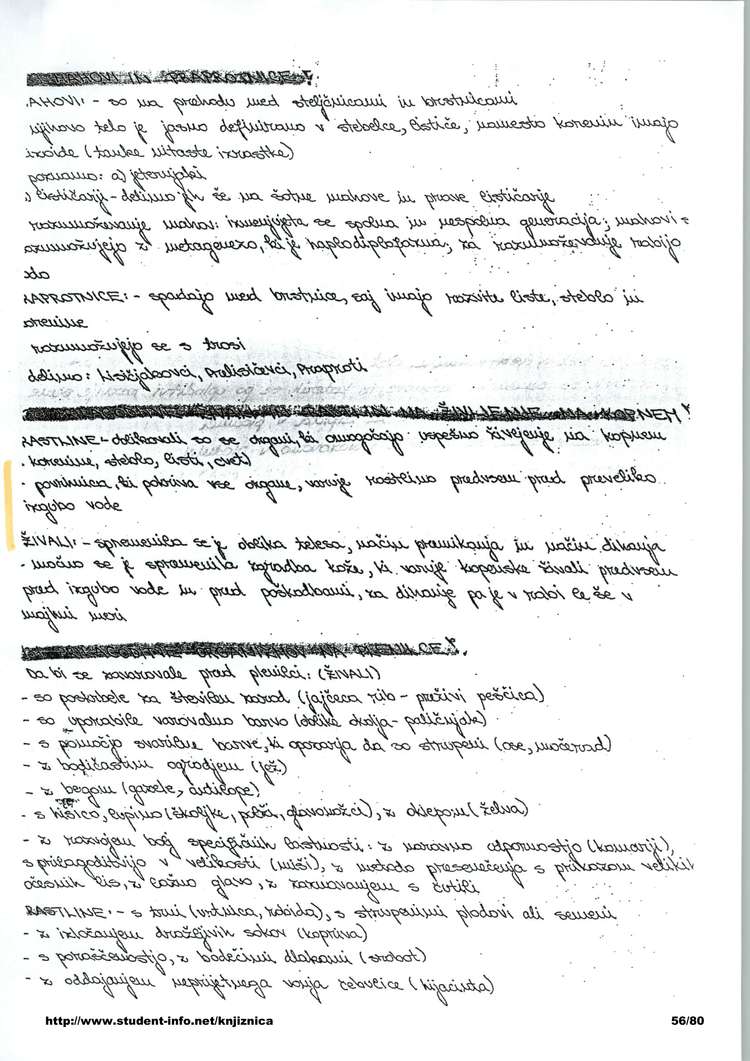 MAHOVI IN PRAPROTNICE!
AHOVI: - so na prehodu med steljčnicami in brstnicami
njihovo telo je jasno definirano v stebelce, lističe, namesto korenin imajo
izoide (tanke nitaste izrastke)
poznamo: a) jetrnjaki
) lističarji - delimo jih še na šotne mahove in prave lističarje
razmnoževanje mahov: izmenjujeta se spolna in nespolna generacija; mahovi s
azmnožujejo z metagenezo, ki je haplodiplofazna; za razmnoževanje rabijo
do
RAPROTNICE: - spadajo med brstnice, saj imajo razvite liste, steblo in
orenine
razmnožujejo se s trosi
delimo: Lisičjakovci, Presličevci, Praproti
RASTLIN NA ŽIVLJENJE NA KOPNEM!
RASTLINE - oblikovali so se organi, ki omogočajo uspešno življenje na kopnem
- korenine, steblo, listi, cvet)
- povrhnjica, ki pokriva vse organe, varuje rastlino predvsem pred preveliko
izgubo vode
ŽIVALI: - spremenila se je oblika telesa, način premikanja in način dihanja
- močno se je spremenila zgradba kože, ki varuje kopenske živali predvsem
pred izgubo vode in pred poškodbami, za dihanje pa je v rabi le še v
majhni meri
ORGANIZMOV NA PLENILCE!
Da bi se zavarovale pred plenilci: (ŽIVALI)
- so poskrbele za številen zarod (jajčeca rib - preživi peščica)
- so uporabile varovalno barvo (oblike okolja - paličnjak)
- s pomočjo svarilne barve, ki opozarja da so strupeni (ose, močerad)
- z bodičastim ogrodjem (jež)
- z begom (gazele, antilope)
- s hišico, lupino (školjke, polži, glavonožci), z oklepom (želva)
- z razvojem bolj specifičnih lastnosti: z naravno odpornostjo (komarji),
s prilagoditvijo v velikosti (miši), z metodo presenečenja s prikazom velikih
očesnih lis, z lažno glavo, z zaznavanjem s čutili
RASTLINE: - s trni (vrtnica, robida), s strupenimi plodovi ali semeni
- z izločanjem dražljivih sokov (kopriva)
- s poraščenostjo, z bodečimi dlakami (srobot)
- z oddajanjem neprijetnega vonja čebulice (hijacinta)
http://www.student-info.net/knjiznica 56/80